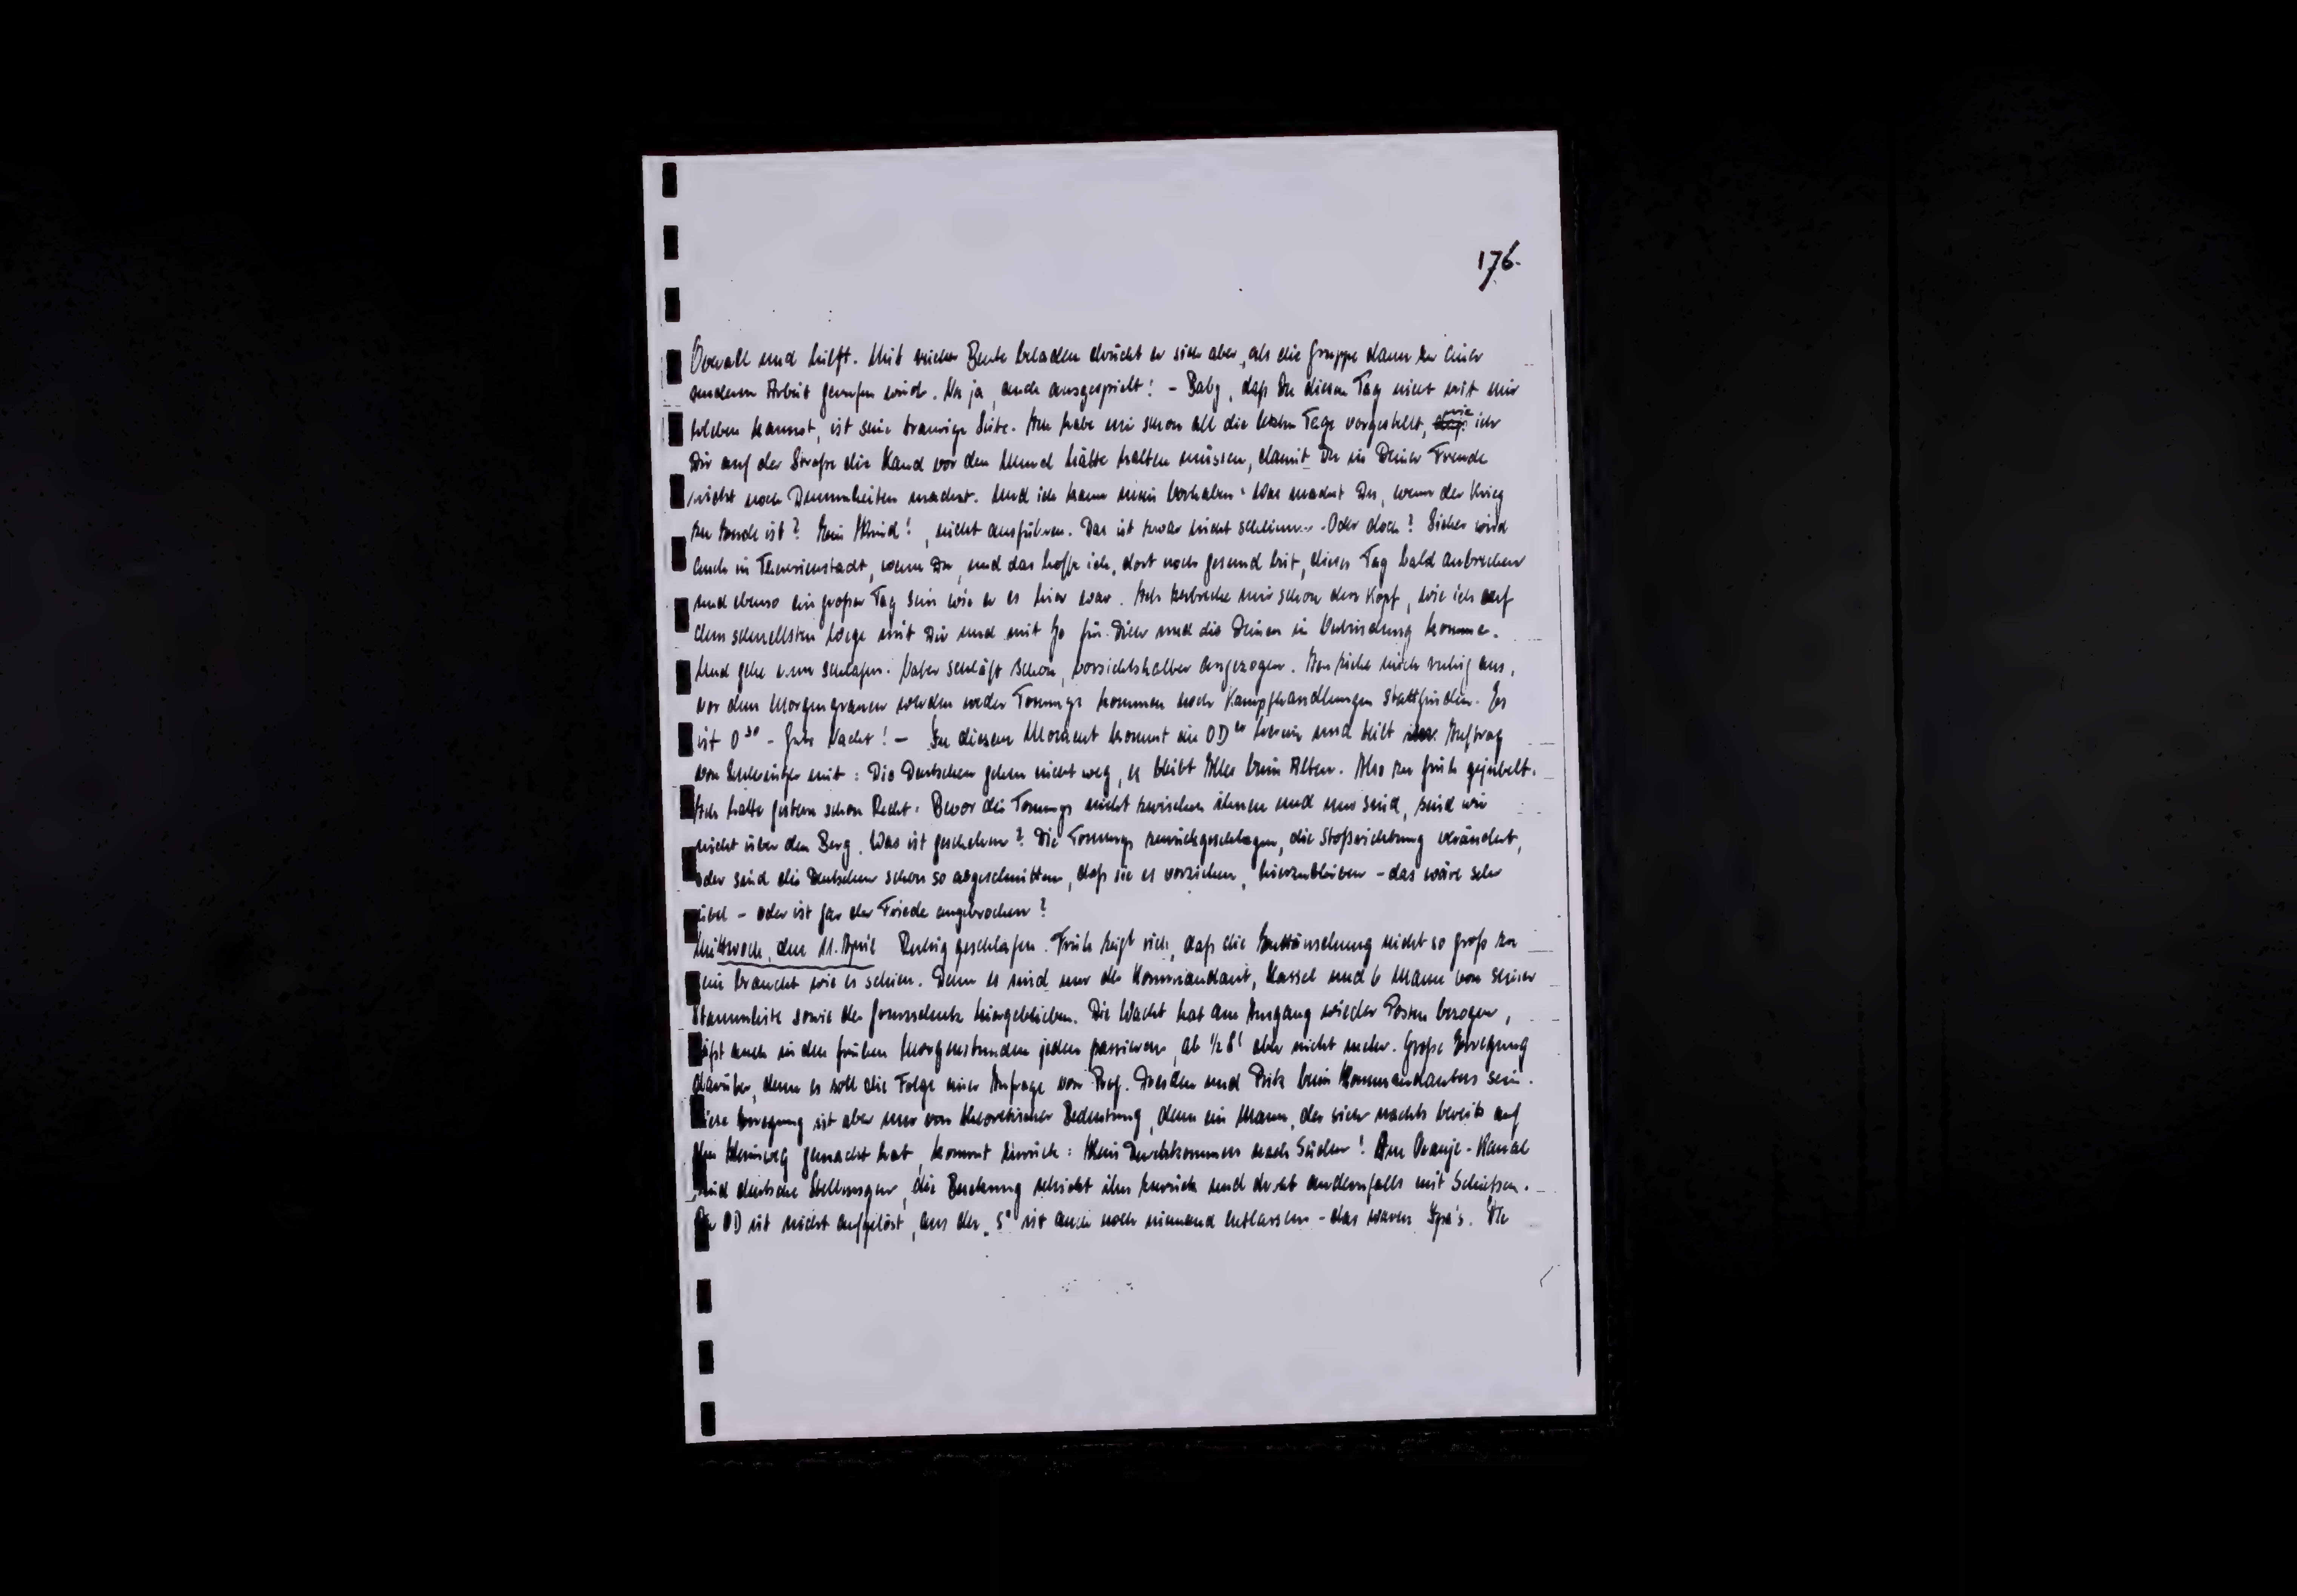 176.
Overall und hilft. Mit reicher Beute beladen drückt er sich aber, als die Gruppe dann zu einer
anderen Arbeit gerufen wird. Na ja, auch ausgespielt! - Baby, daß Du diesen Tag nicht mit mir
erleben kannst, ist seine traurige Seite. Ich habe mir schon all die letzten Tage vorgestellt, wie ich
Dir auf der Straße die Hand vor den Mund hätte halten müssen, damit Du in Deiner Freude
nicht noch Dummheiten machst. Und ich kann mein Vorhaben: Was machst Du, wenn der Krieg
zu Ende ist? Kein Kind!, nicht ausführen. Das ist zwar nicht schlimm. - Oder doch? Sicher wird
auch in Theresienstadt, wenn Du, und das hoffe ich, dort noch gesund bist, dieser Tag bald anbrechen
und ebenso ein großer Tag sein wie er es hier war. Ich zerbreche mir schon den Kopf, wie ich auf
dem schnellsten Wege mit Dir und mit Jo für Dich und die Deinen in Verbindung komme.
Und gehe nun schlafen. Vater schläft schon, vorsichtshalber angezogen. Ich ziehe mich ruhig aus,
vor dem Morgengrauen werden weder Tommys kommen noch Kampfhandlungen stattfinden. Es
ist 0³⁰ - Gute Nacht! - In diesem Moment kommt ein ODer herein und teilt im Auftrag
von Schlesinger mit: Die Deutschen gehen nicht weg, es bleibt Alles beim Alten. Also zu früh gejubelt.
Ich hatte gestern schon Recht: Bevor die Tommys nicht zwischen ihnen und uns sind, sind wir
nicht über den Berg. Was ist geschehen? Die Tommys zurückgeschlagen, die Stoßrichtung verändert,
oder sind die Deutschen schon so abgeschnitten, daß sie es vorziehen, hierzubleiben - das wäre sehr
übel - oder ist gar der Friede angebrochen?
Mittwoch, den 11. April Ruhig geschlafen. Früh zeigt sich, daß die Enttäuschung nicht so groß zu
sein braucht wie es schien. Denn es sind nur der Kommandant, Hassel und 6 Mann von seiner
Stammliste sowie der Grenzschutz hiergeblieben. Die Wacht hat am Ausgang wieder Posten bezogen,
läßt auch in den frühen Morgenstunden jeden passieren, ab ½ 8ʰ aber nicht mehr. Große Erregung
darüber, denn es soll die Folge einer Anfrage von Prof. Dresden und Pritz beim Kommandanten sein.
Diese Erregung ist aber nur von theoretischer Bedeutung, denn ein Mann, der sich nachts bereits auf
den Heimweg gemacht hat, kommt zurück: Kein Durchkommen nach Süden! Am Oranje-Kanal
sind deutsche Stellungen, die Besatzung schickt ihn zurück und droht andernfalls mit Schießen.
Der OD ist nicht aufgelöst, aus der „S" ist auch noch niemand entlassen - das waren Ipa's. Die